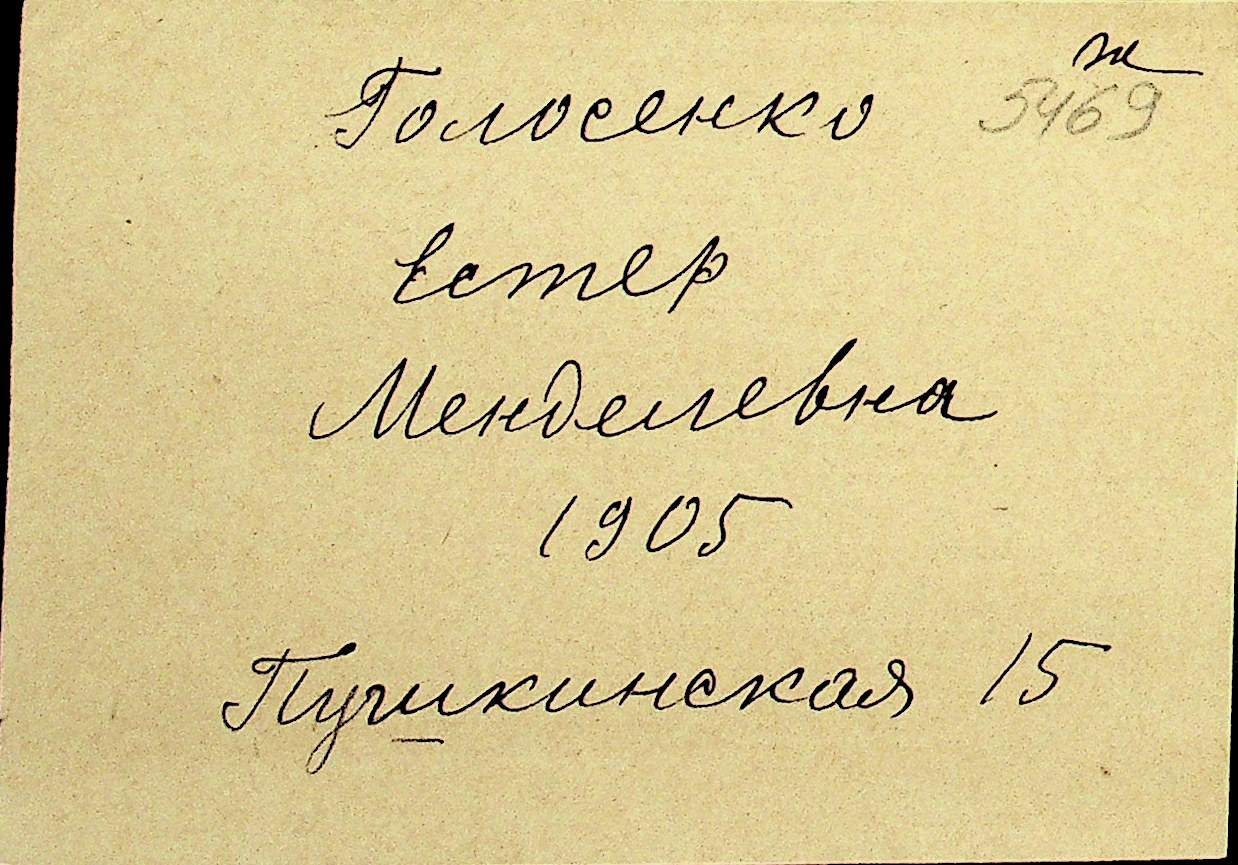 ж
Голосенко 5469
Естер
Менделевна
1905
Пушкинская 15